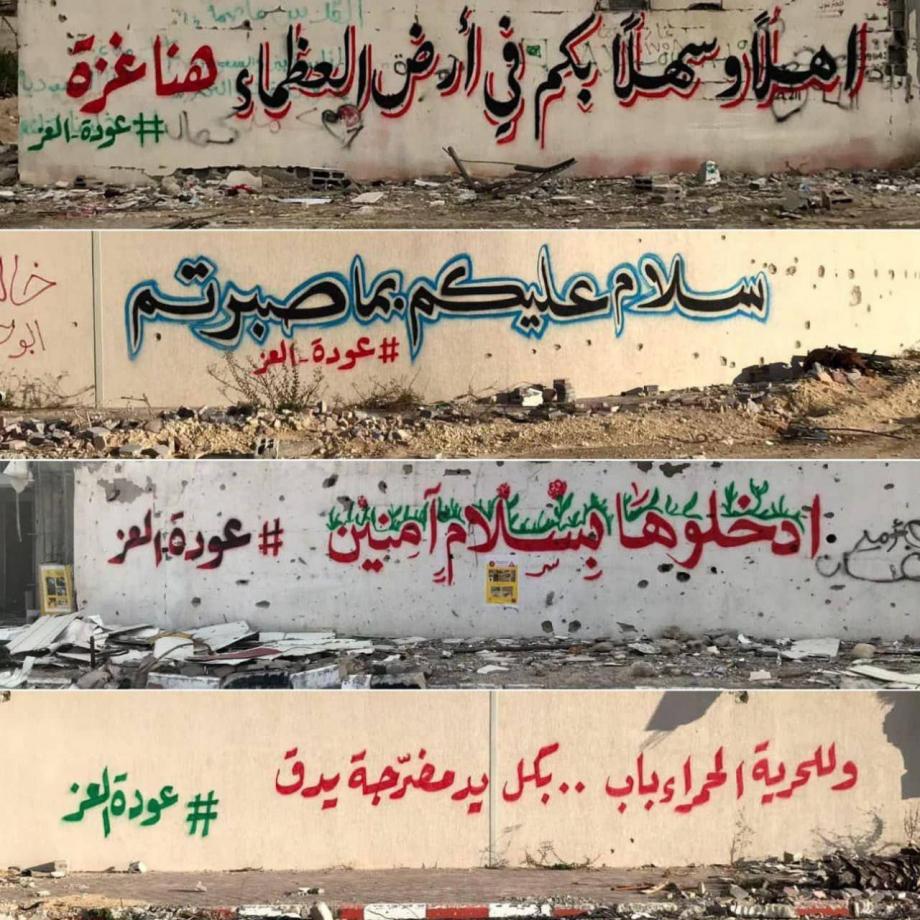 اهلًا وسهلًا بكم في أرض العظماء هنا غزة
#عودة_العز
سلام عليكم بما صبرتم
#عودة_العز
ادخلوها بِسَلامٍ آمِنين
#عودة_العز
وللحرية الحمراء باب .. بكل يد مضرّجة يدق
#عودة العز